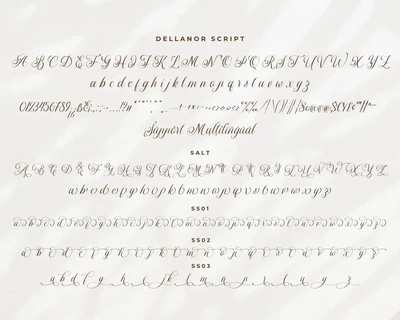 DELLANOR SCRIPT
A B C D E F G H I J K L M N O P Q R S T U V W X Y Z
a b c d e f g h i j k l m n o p q r s t u v w x y z
0123456789
Support Multilingual
SALT
A B C D E F G H I J K L M N O P Q R S T U V W X Y Z
a b c d e f g h i j k l m n o p q r s t u v w x y z
SS01
a b c d e f g h i j k l m n o p q r s t u v w x y z
SS02
a b c d e f g h i j k l m n o p q r s t u v w x y z
SS03